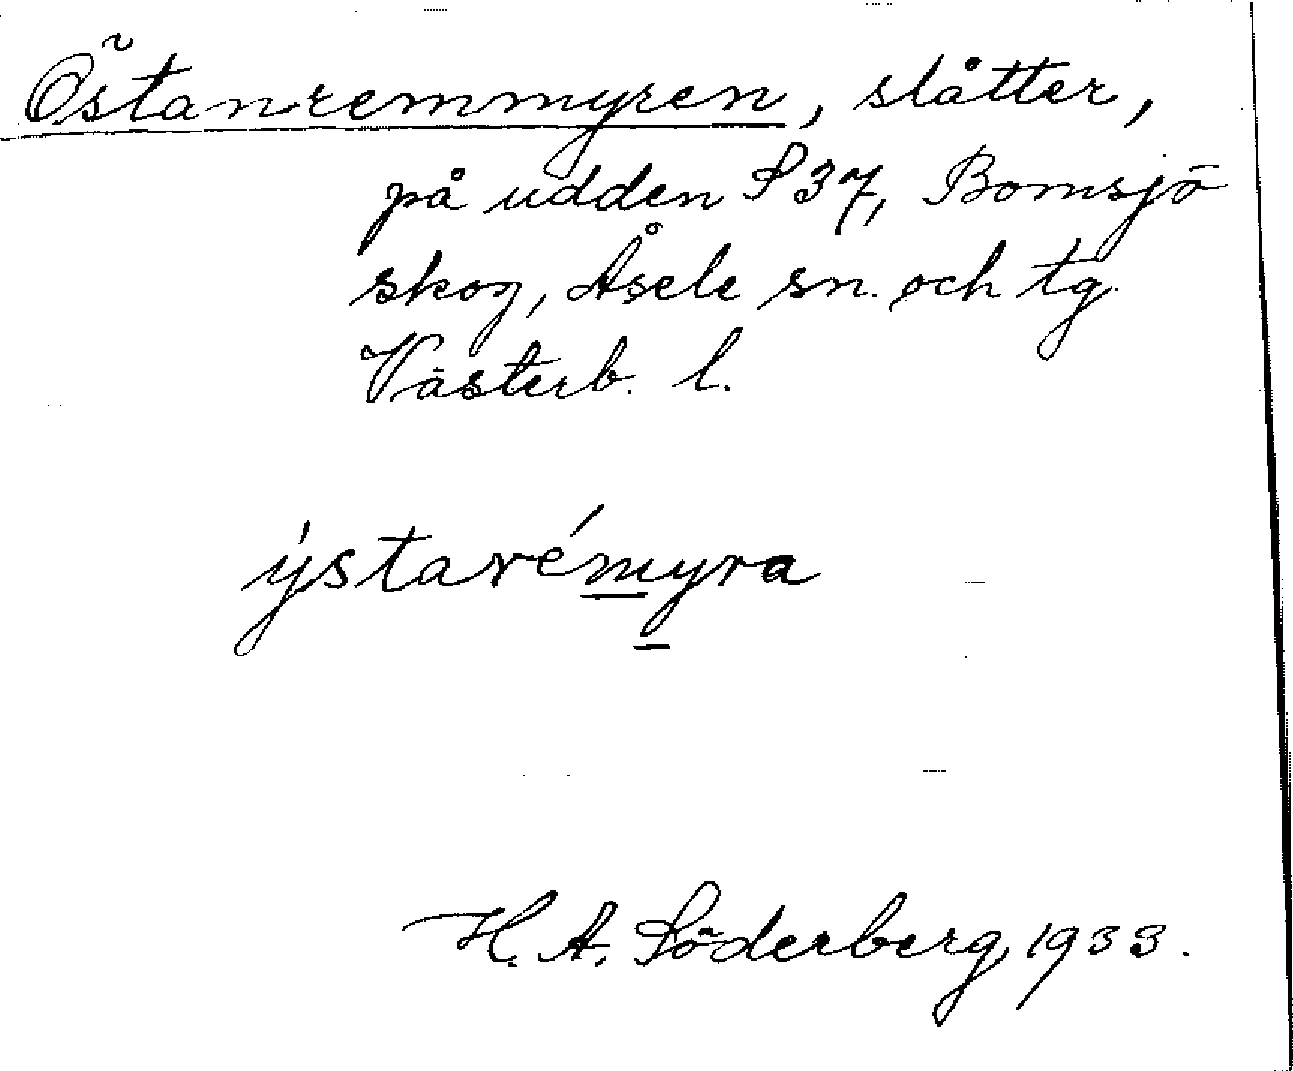 Östanremmyren, slåtter,
på udden S 37, Bomsjö
skog, Åsele sn. och tg.
Västerb. l.
ýstarémyra
H. A. Söderberg, 1933.